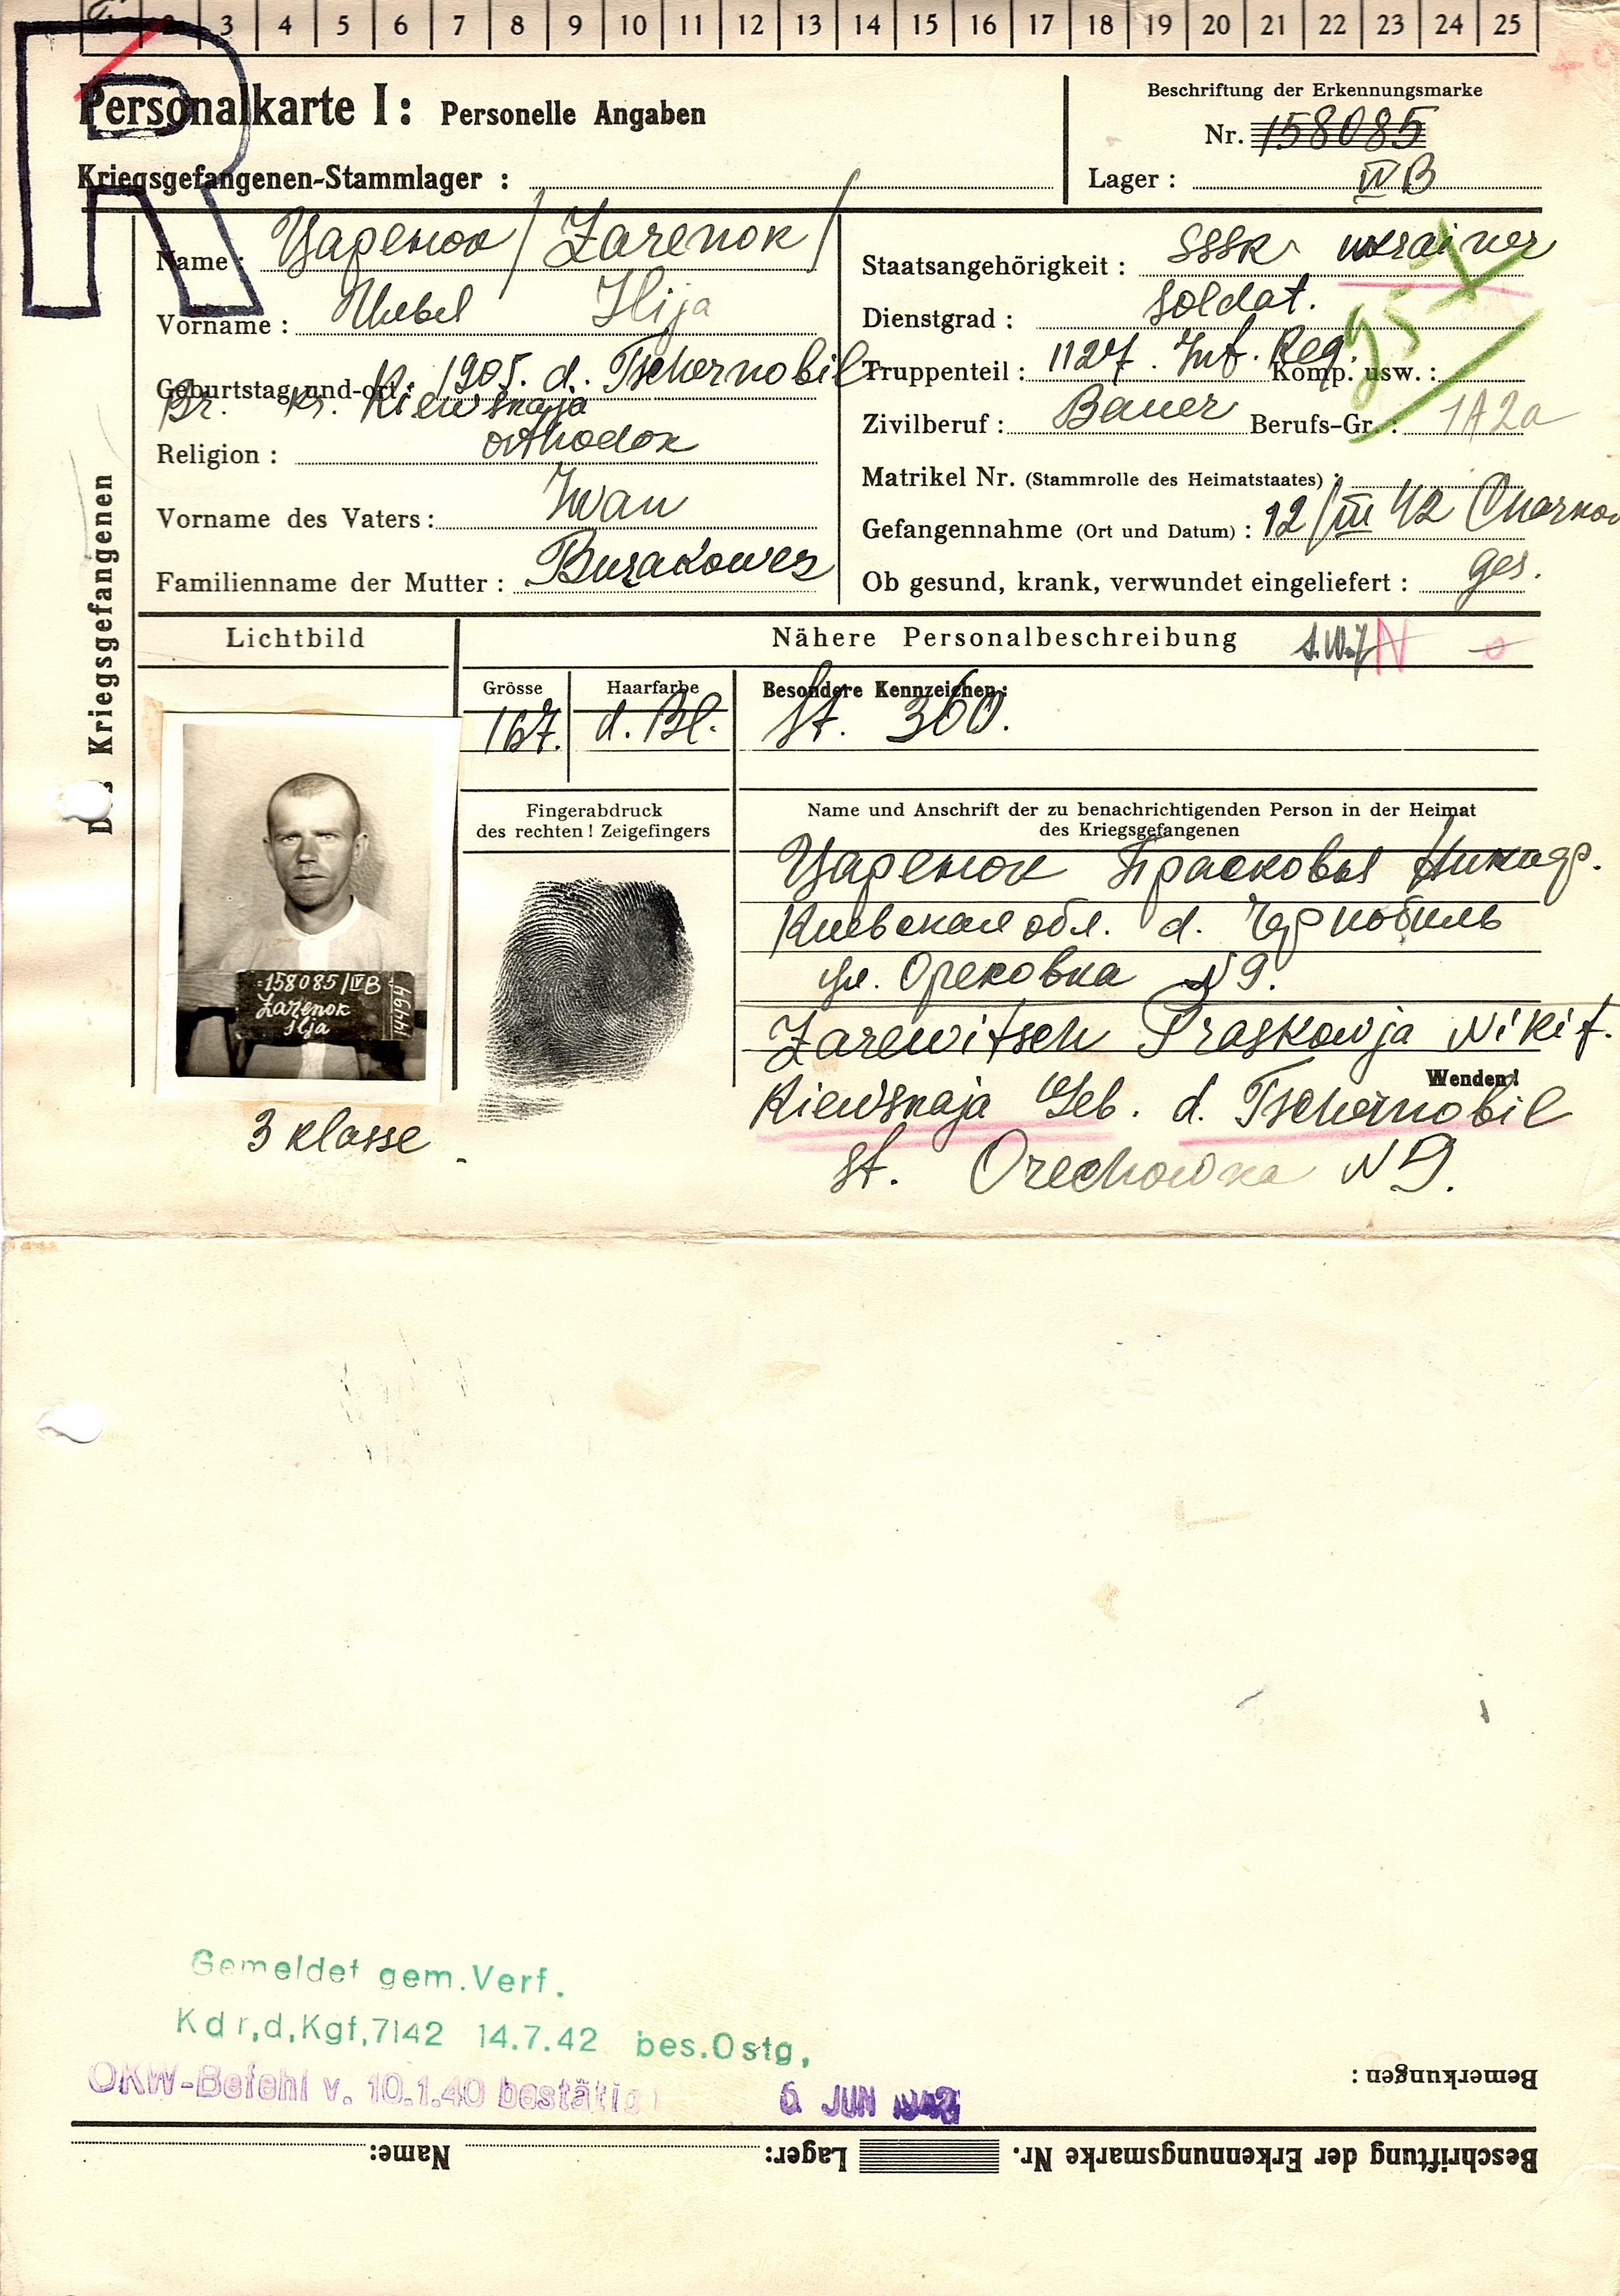 1 2 3 4 5 6 7 8 9 10 11 12 13 14 15 16 17 18 19 20 21 22 23 24 25
R
Personalkarte I: Personelle Angaben
Beschriftung der Erkennungsmarke
Nr. 158085
Kriegsgefangenen-Stammlager :
Lager : IV B
Des Kriegsgefangenen
Name: / Zarenok /
Vorname : Ilija
Geburtstag und-ort: 1905. d. Tschernobil
Kr. Kiewskaja
Religion : orthodox
Vorname des Vaters: Iwan
Familienname der Mutter :
Staatsangehörigkeit : SSSR ukrainer
Dienstgrad : Soldat.
Truppenteil : 1127. Inf. Reg. Komp. usw. :
Zivilberuf : Bauer Berufs-Gr. : 1A2a
Matrikel Nr. (Stammrolle des Heimatstaates) :
Gefangennahme (Ort und Datum) : 12/III 42 Charkow
Ob gesund, krank, verwundet eingeliefert : ges.
Lichtbild
Nähere Personalbeschreibung
N
Grösse
167.
Haarfarbe
d. Bl.
Besondere Kennzeichen:
St. 360.
158085/IVB
Zarenok
Ilja
44994
3 klasse
Fingerabdruck
des rechten! Zeigefingers
Name und Anschrift der zu benachrichtigenden Person in der Heimat
des Kriegsgefangenen
Царенок Прасковья
Киевская обл. d. Чернобиль
ул. Ореховка N 9.
Zarewitsch Praskowja Nikif.
Wenden!
Kiewskaja Geb. d. Tschernobil
St. Orechowka N 9.
Gemeldet gem. Verf.
Kdr,d,Kgf,7142 14.7.42 bes.Ostg,
OKW-Befehl v. 10.1.40 bestätig
6. JUN
Bemerkungen :
Beschriftung der Erkennungsmarke Nr. Lager: Name: